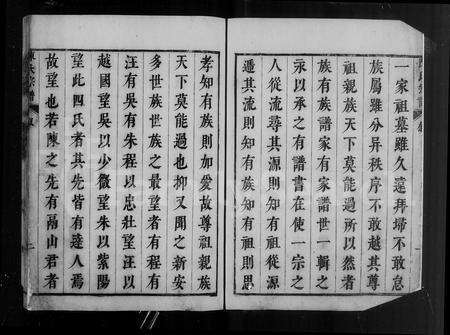 一家祖墓雖久遠拜掃不敢怠
族屬雖分昇秩序不敢越其尊
祖親族天下莫能過所以然者
族有族譜家有家譜世一輯之
永以承之有譜書在使一宗之
人從流尋其源則知有祖從源
遡其流則知有族知有祖則思
孝知有族則加愛故尊祖親族
天下莫能過也抑又聞之新安
多世族世族之最望者有程有
汪有吳有朱程以忠壯望汪以
越國望吳以少微望朱以紫陽
望此四氏者其先皆有達人焉
故望也若陳之先有鬲山君者